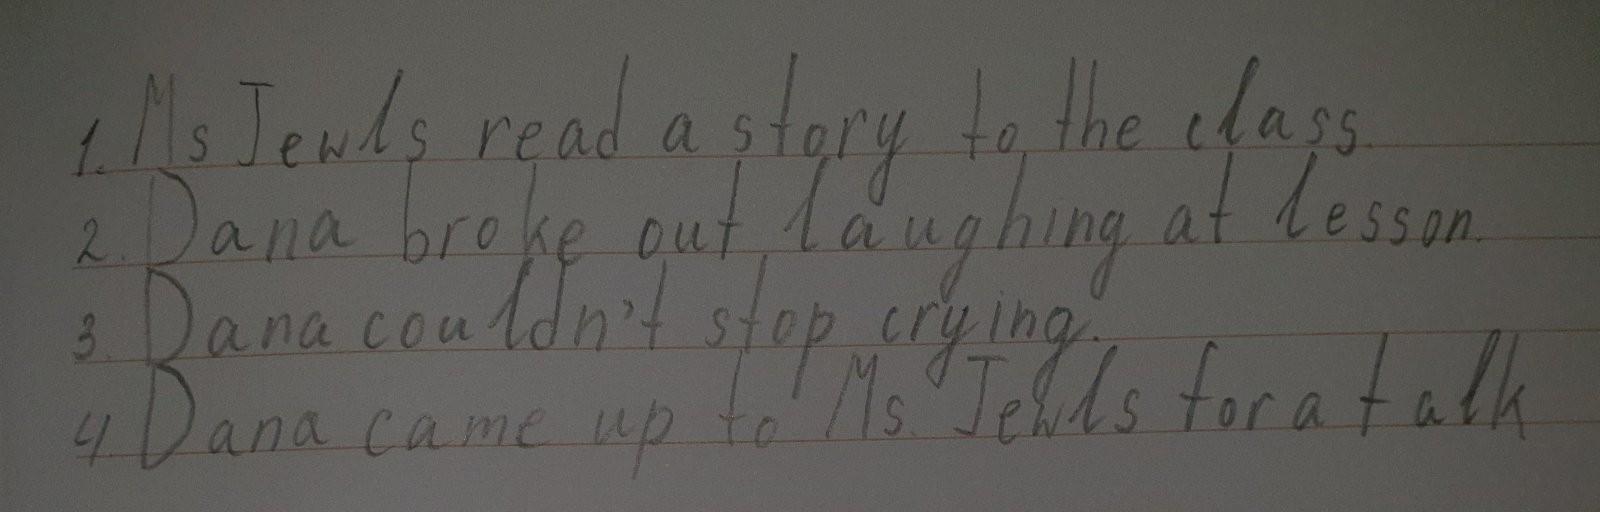 1. Ms Jewls read a story to the class.
2. Dana broke out laughing at lesson.
3. Dana couldn't stop crying.
4. Dana came up to Ms. Jewls for a talk